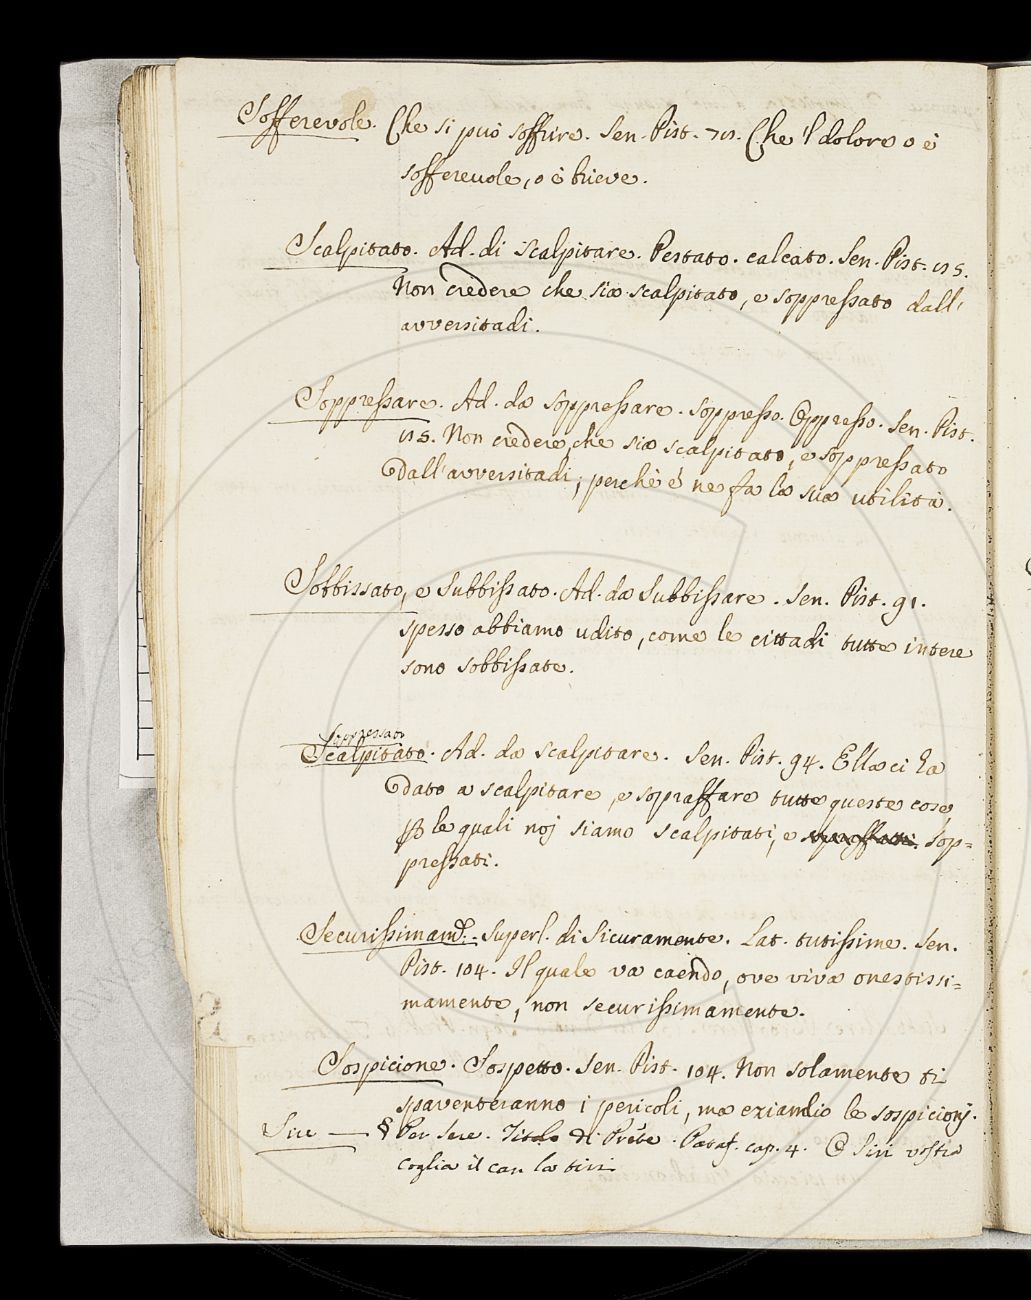 Sofferevole. Che si può soffrire. Sen. Pist. 78. Che 'l dolore o è
sofferevole, o è brieve.
Scalpitato. Ad. di Scalpitare. Pestato. calcato. Sen. Pist.
Non credere che sia scalpitato, e soppressato dall'
avversitadi.
Soppressare. Ad. da soppressare. soppresso. Oppresso. Sen. Pist.
Non credere, che sia scalpitato, e soppressato
dall'avversitadi, perchè é ne fa la sua utilità.
Sobbissato, e Subbissato. Ad. da Subbissare. Sen. Pist. 91.
spesso abbiamo udito, come le cittadi tutte intere
sono sobbissate.
soppressato
Scalpitato. Ad. da scalpitare. Sen. Pist. 94. Ella ci ha
dato a scalpitare, e sopraffare tutte queste cose
le quali noj siamo scalpitati, e sop=
pressati.
Securissimam.e. Superl. di Sicuramente. Lat. tutissime. Sen.
Pist. 104. Il quale va caendo, ove viva onestissi=
mamente, non securissimamente.
Sospicione. Sospetto. Sen. Pist. 104. Non solamente ti
spaventeranno i pericoli, ma eziamdio le sospicionj.
Sire — § Per Sere. Titolo di Prete. Pataf. cap. 4. O Siri vostra
coglia il can la tiri